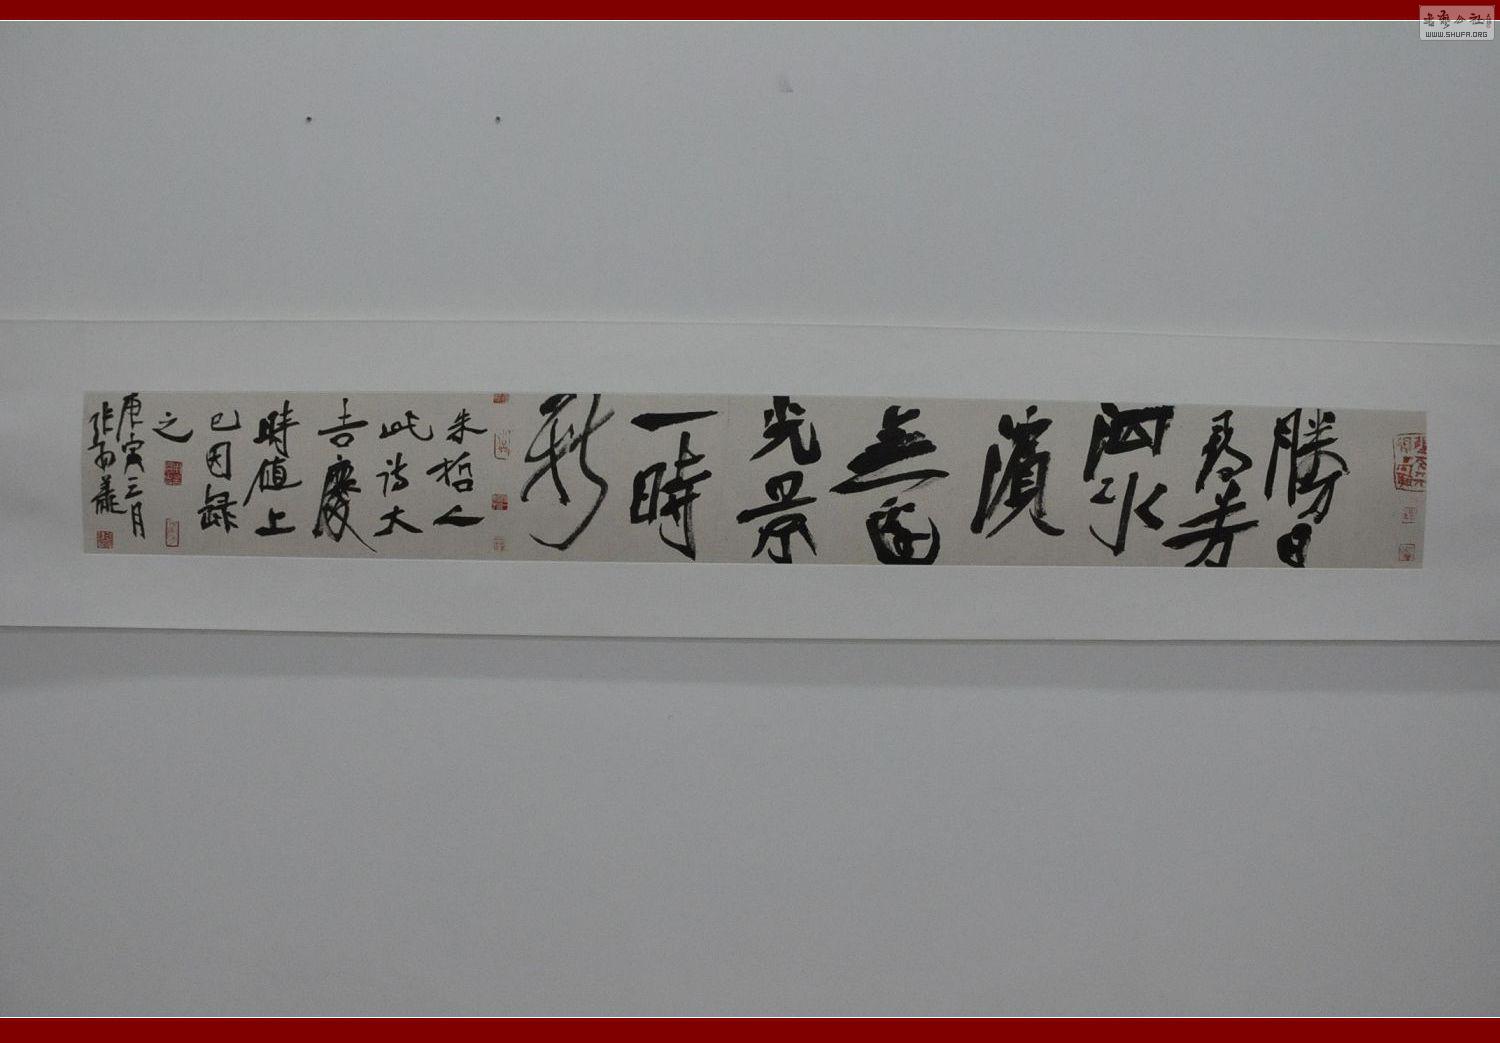 勝日
尋芳
泗水
濱
無邊
光景
一時
新
朱哲人
此詩大
吉慶
時值上
巳因録
之
庚寅三月
張
WWW.SHUFA.ORG